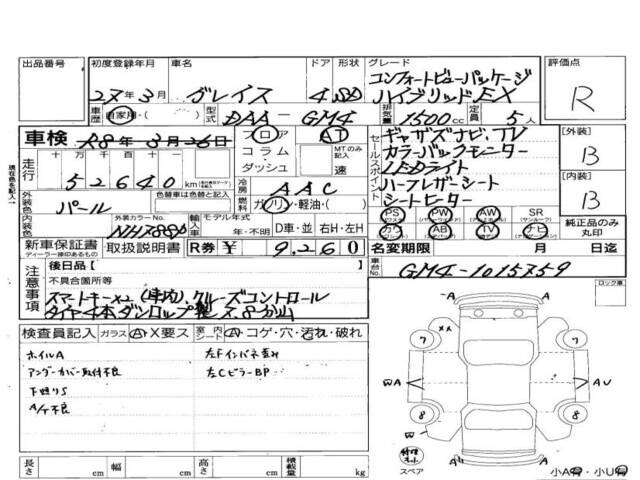 出品番号 初度登録年月 車名 ドア 形状 グレード 評価点
27年3月 グレイス 4 SD コンフォートビューパッケージ
ハイブリッドEX
R
車歴 自家用・( ) 型式 DAA-GM4 排気量 1500cc 定員 5人
車検 R8年3月26日 フロア AT セールスポイント ギャザズナビ,TV [外装]
コラム MTのみ記入 カラーバックモニター B
走行 十万 万 千 百 十 一 ダッシュ 速 LEDライト
52640km 冷房 AAC ハーフレザーシート [内装]
外装色 パール 燃料 ガソリン・軽油・( ) シートヒーター B
内装色 外装カラーNo. 輸入車 モデル年式 PS PW AW SR
NH788P 年・不明 D車・並 右H・左H カワ AB TV ナビ 純正品のみ丸印
新車保証書 取扱説明書 R券 ¥ 9,260 名変期限 月 日迄
ディーラー捺印あるもの
現在色を記入
車台No. GM4-1015759
注意事項 後日品[ ]
不具合箇所等 ロック車
スマートキー×2(車内),クルーズコントロール
タイヤ4本ダンロップ製
検査員記入 ガラス A・X要ス 室内シート A・コゲ・穴・汚れ・破れ
ホイルA 左FインパネB歪み
アンダーカバー取付不良 左CピラーBP
下廻りS
A/T不良
A A
××
7 7
WA AU
8 8
W
修理キット
スペア A A
小A有・小U有
長さ cm 幅 cm 高さ cm 積載量 kg